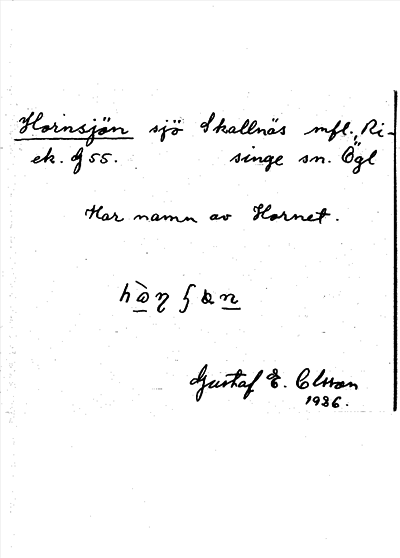 Hornsjön sjö Skallnäs mfl., Ri-
ek. G 55. singe sn. Ögl
Har namn av Hornet.
Gustaf E. Olsson
1936.